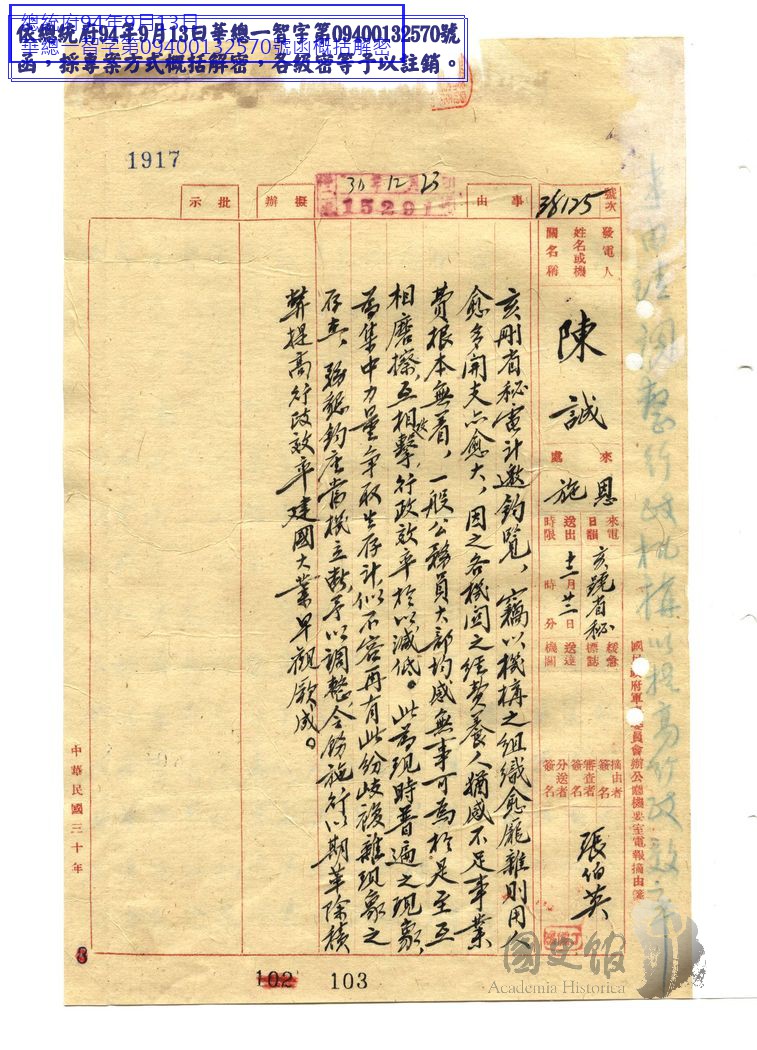 總統府94年9月13日
華總一智字第09400132570號函概括解密
依總統府94年9月13日華總一智字第09400132570號
函，採專案方式概括解密，各級密等予以註銷。
1917
建議調整行政機構以提高行政效率
號次
38125
事由
30 12 23
15291
擬辦
批示
發電人
姓名或機
關名稱
陳誠
來處
恩施
來電
日韻
亥號省秘
送出
時限
十二月廿三日
時
分
緩急
標誌
送達
機關
摘由者
簽名
審查者
簽名
分送者
簽名
張伯英
國民政府軍事委員會辦公廳機要室電報摘由箋
亥刪省秘電計邀鈞覽，竊以機構之組織愈龐雜則用人
愈多開支亦愈大，因之各機關之經費養人猶感不足事業
費根本無着，一般公務員大部均感無事可為於是互
相磨擦，互相攻擊，行政效率於以減低。此為現時普遍之現象，
為集中力量爭取生存計，似不容再有此紛歧複雜現象之
存在，務懇鈞座當機立斷，予以調整令飭施行以期革除積
弊提高行政效率建國大業早觀厥成。
中華民國三十年
102
103
國史館
Academia Historica